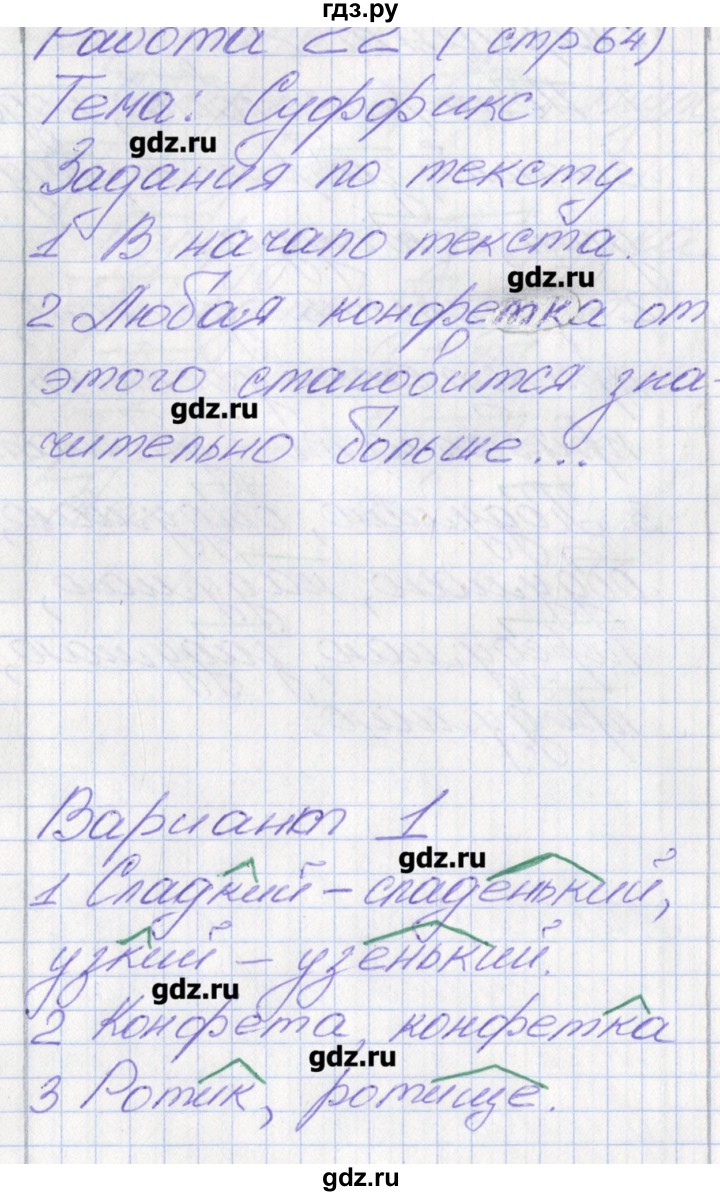 гдз.ру
Работа 22 (стр 64)
Тема: Суффикс
gdz.ru
Задания по тексту
1 В начало текста.
gdz.ru
2 Любая конфетка от
этого становится зна-
gdz.ru
чительно больше...
Вариант 1
gdz.ru
1 Сладкий – сладенький,
узкий – узенький.
gdz.ru
2 Конфета, конфетка
gdz.ru
3 Ротик, ротище.
gdz.ru